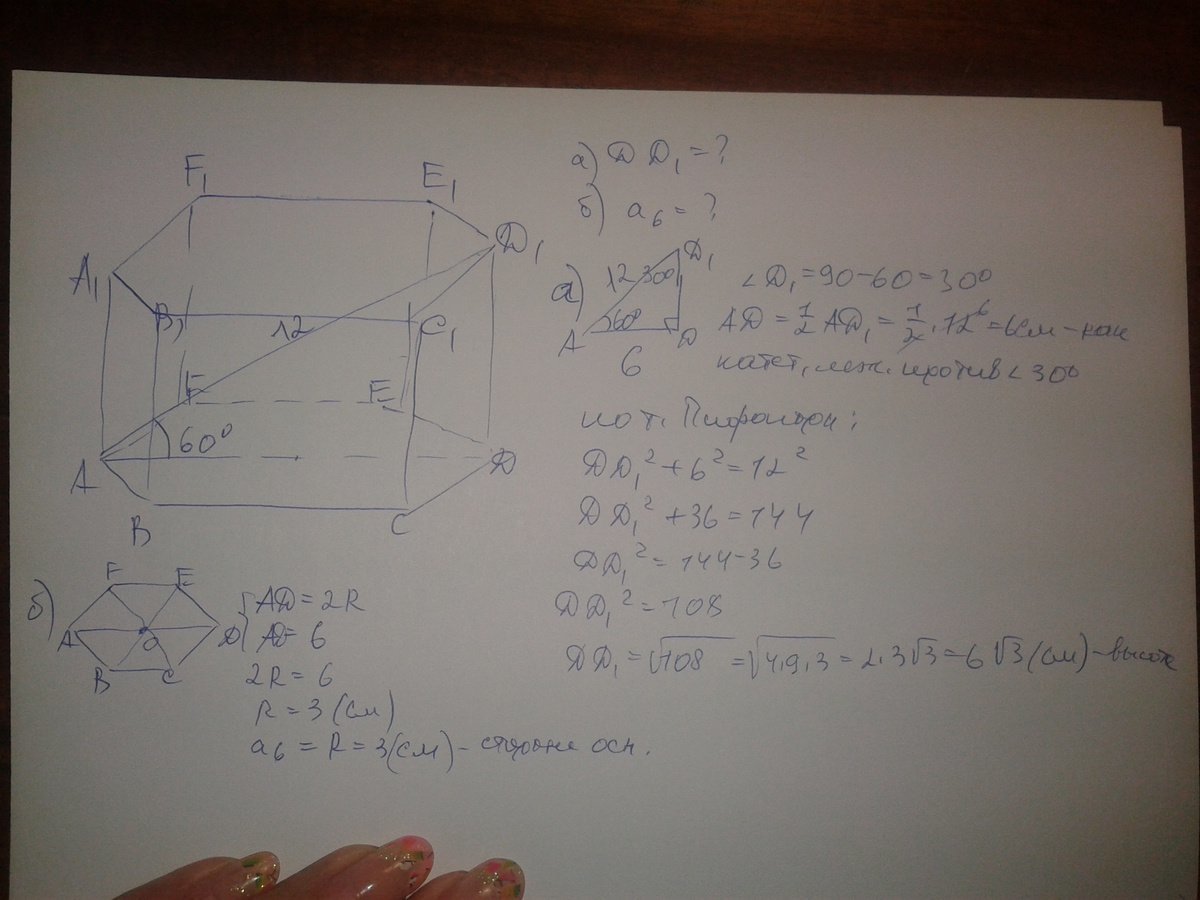 F₁
E₁
A₁
D₁
B₁
12
C₁
F
E
60°
A
D
B
C
а) DD₁ = ?
б) a₆ = ?
а)
D₁
12 30°
60°
A
D
6
∠D₁ = 90 - 60 = 30°
AD = 1/2 AD₁ = 1/2 · 12 ⁶ = 6см - как
катет, леж. против ∠30°
по т. Пифагора:
DD₁² + 6² = 12²
DD₁² + 36 = 144
DD₁² = 144 - 36
DD₁² = 108
DD₁ = √108 = √4.9.3 = 2.3√3 = 6√3 (см) - высота
б)
F
E
A
O
D
B
C
{ AD = 2R
AD = 6
2R = 6
R = 3 (см)
a₆ = R = 3 (см) - сторона осн.